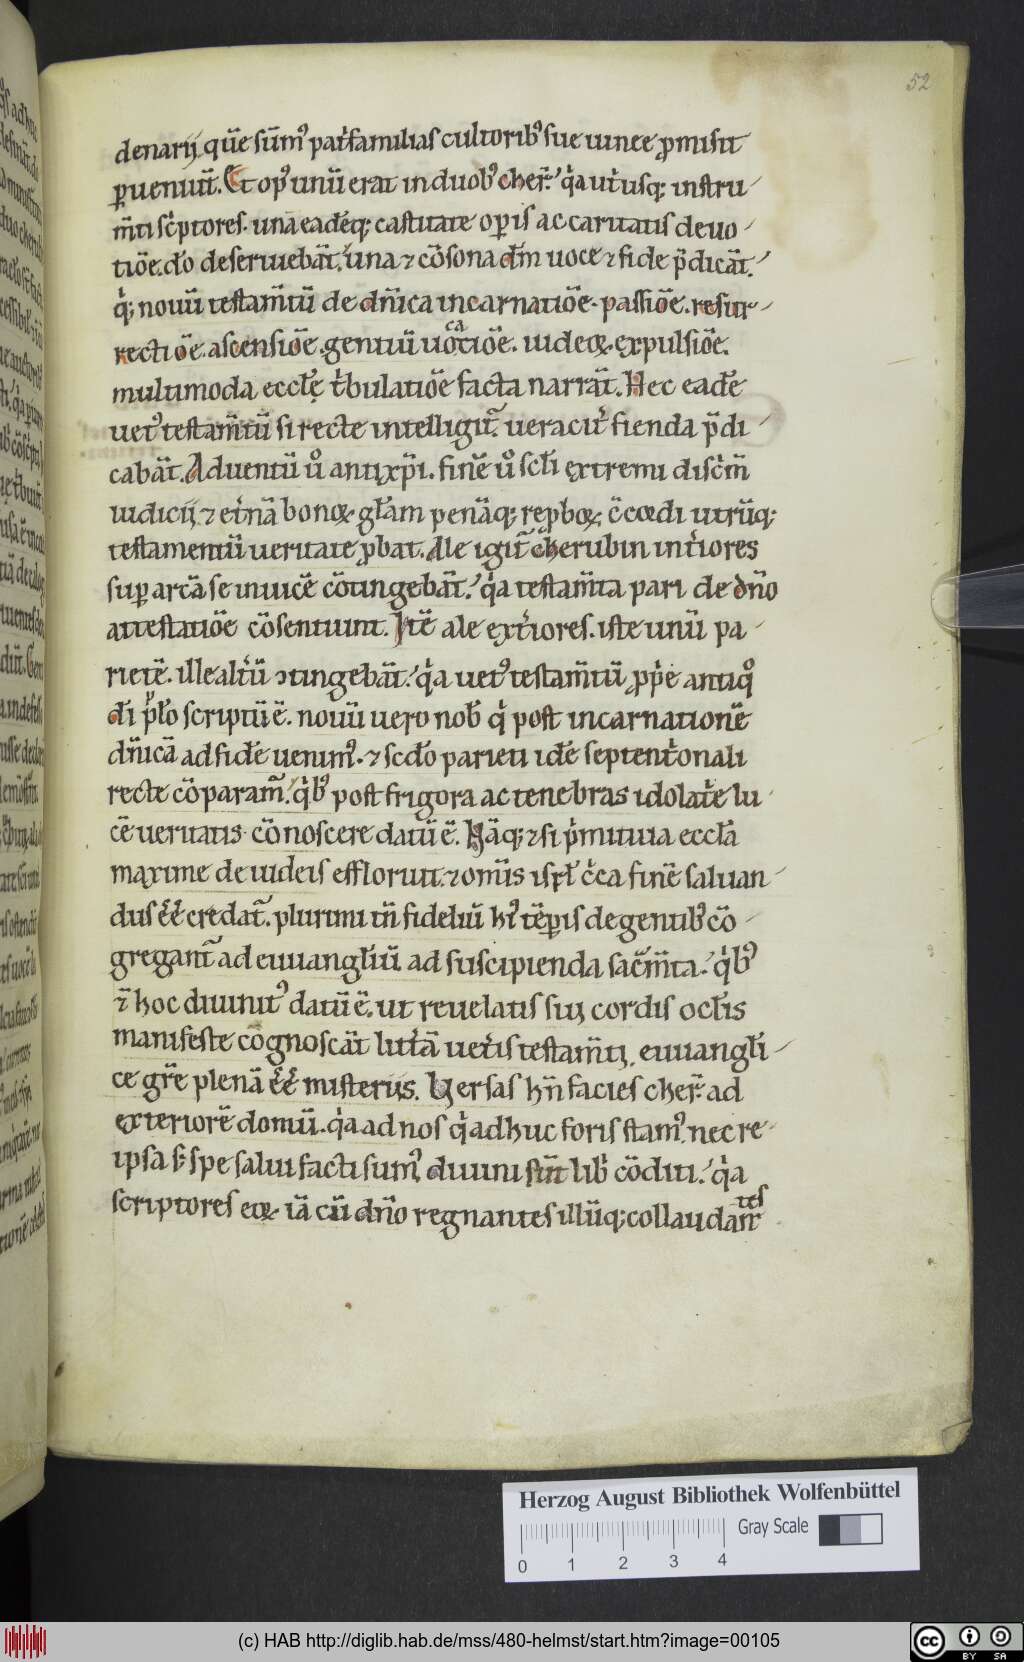 52
denarij que̅ su̅m᷒ patr̅familias cultorib᷒ sue uinee ꝓmisit
ꝑuenıu̅t. Et op᷒ unu̅ erat in duob᷒ cher̅. q̇a ut̍usq; instru
m̅ti sc̍ptores. una eade̅q; castitate oꝑis ac caritatis deuo
tio̅e. d̅o deseruieba̅t. una ⁊ co̅sona d̅m uoce ⁊ fide p̅dica̅t.
q̍; nouu̅ testam̅tu̅ de dn̅ica incarnatio̅e. passio̅e. resur
rectio̅e. ascensio̅e. gentiu̅ uocatio̅e. iudeoꝝ expulsio̅e.
multimoda eccl̅ę t̍bulatio̅e facta narra̅t. Hec eade̅
uet᷒ testam̅tu̅ si recte intelligit̅. ueracit̍ fienda p̅di
caba̅t. Aduentu̅ ů antixp̅i. fine̅ ů sc̅li extremi disc̍m̅
iudicij ⁊ et̍na̅ bonoꝝ gl̅am pena̅q; reproboꝝ; c̅cordi utru̅q;
testamentu̅ ueritate ꝓbat. Ale igit̅ cherubin int̍iores
suꝑ arca̅ se inuice̅ co̅tingeba̅t. q̇a testam̅ta pari de dn̅o
attestatio̅e co̅sentiunt. Ite̅ ale ext̍iores. iste unu̅ pa
riete̅. ille alt̍u̅ ↄtingeba̅t. q̇a uet᷒ testam̅tu̅ ꝓp̍e antiq̊
d̅i pp̅lo scriptu̅ e̅. nouu̅ uero nob̅ q̍ post incarnatione̅
dn̅ica̅ ad fide̅ uenim᷒. ⁊ scd̅o parieti ide̅ septent̍onali
recte co̅param̅. q̍b᷒ post frigora ac tenebras idolat̍e lu
ce̅ ueritatis co̅noscere datu̅ e̅. Na̅q; ⁊ si p̍mitiua eccl̅a
maxime de iudeis effloruit. ⁊ om̅is isrl̅ c̍ca fine̅ saluan
dus e̅e̅ credat̅. plurimi tn̅ fideliu̅ hi᷒ te̅ꝑis de gentib᷒ co̅
gregant̅ ad euuangl̅iu̅ ad suscipienda sac̅m̅ta. q̍b᷒
⁊̅ hoc diuinit᷒ datu̅ e̅. ut reuelatis sui cordis ocl̅is
manifeste cognosca̅t litt̍a̅ uet̍is testam̅ti, euuangl̅i
ce gr̅e plena̅ e̅e̅ misteriis. Versas hn̅ facies cher̅. ad
exteriore̅ domu̅. q̇a ad nos q̍ adhuc foris stam᷒. nec re
ipsa s̅ spe salui facti sum᷒, diuini su̅t lib̍ co̅diti. q̇a
scriptores eoꝝ ia̅ cu̅ dn̅o regnantes illu̅q; collaudantes
Herzog August Bibliothek Wolfenbüttel
Gray Scale
0 1 2 3 4
(c) HAB http://diglib.hab.de/mss/480-helmst/start.htm?image=00105
cc BY SA